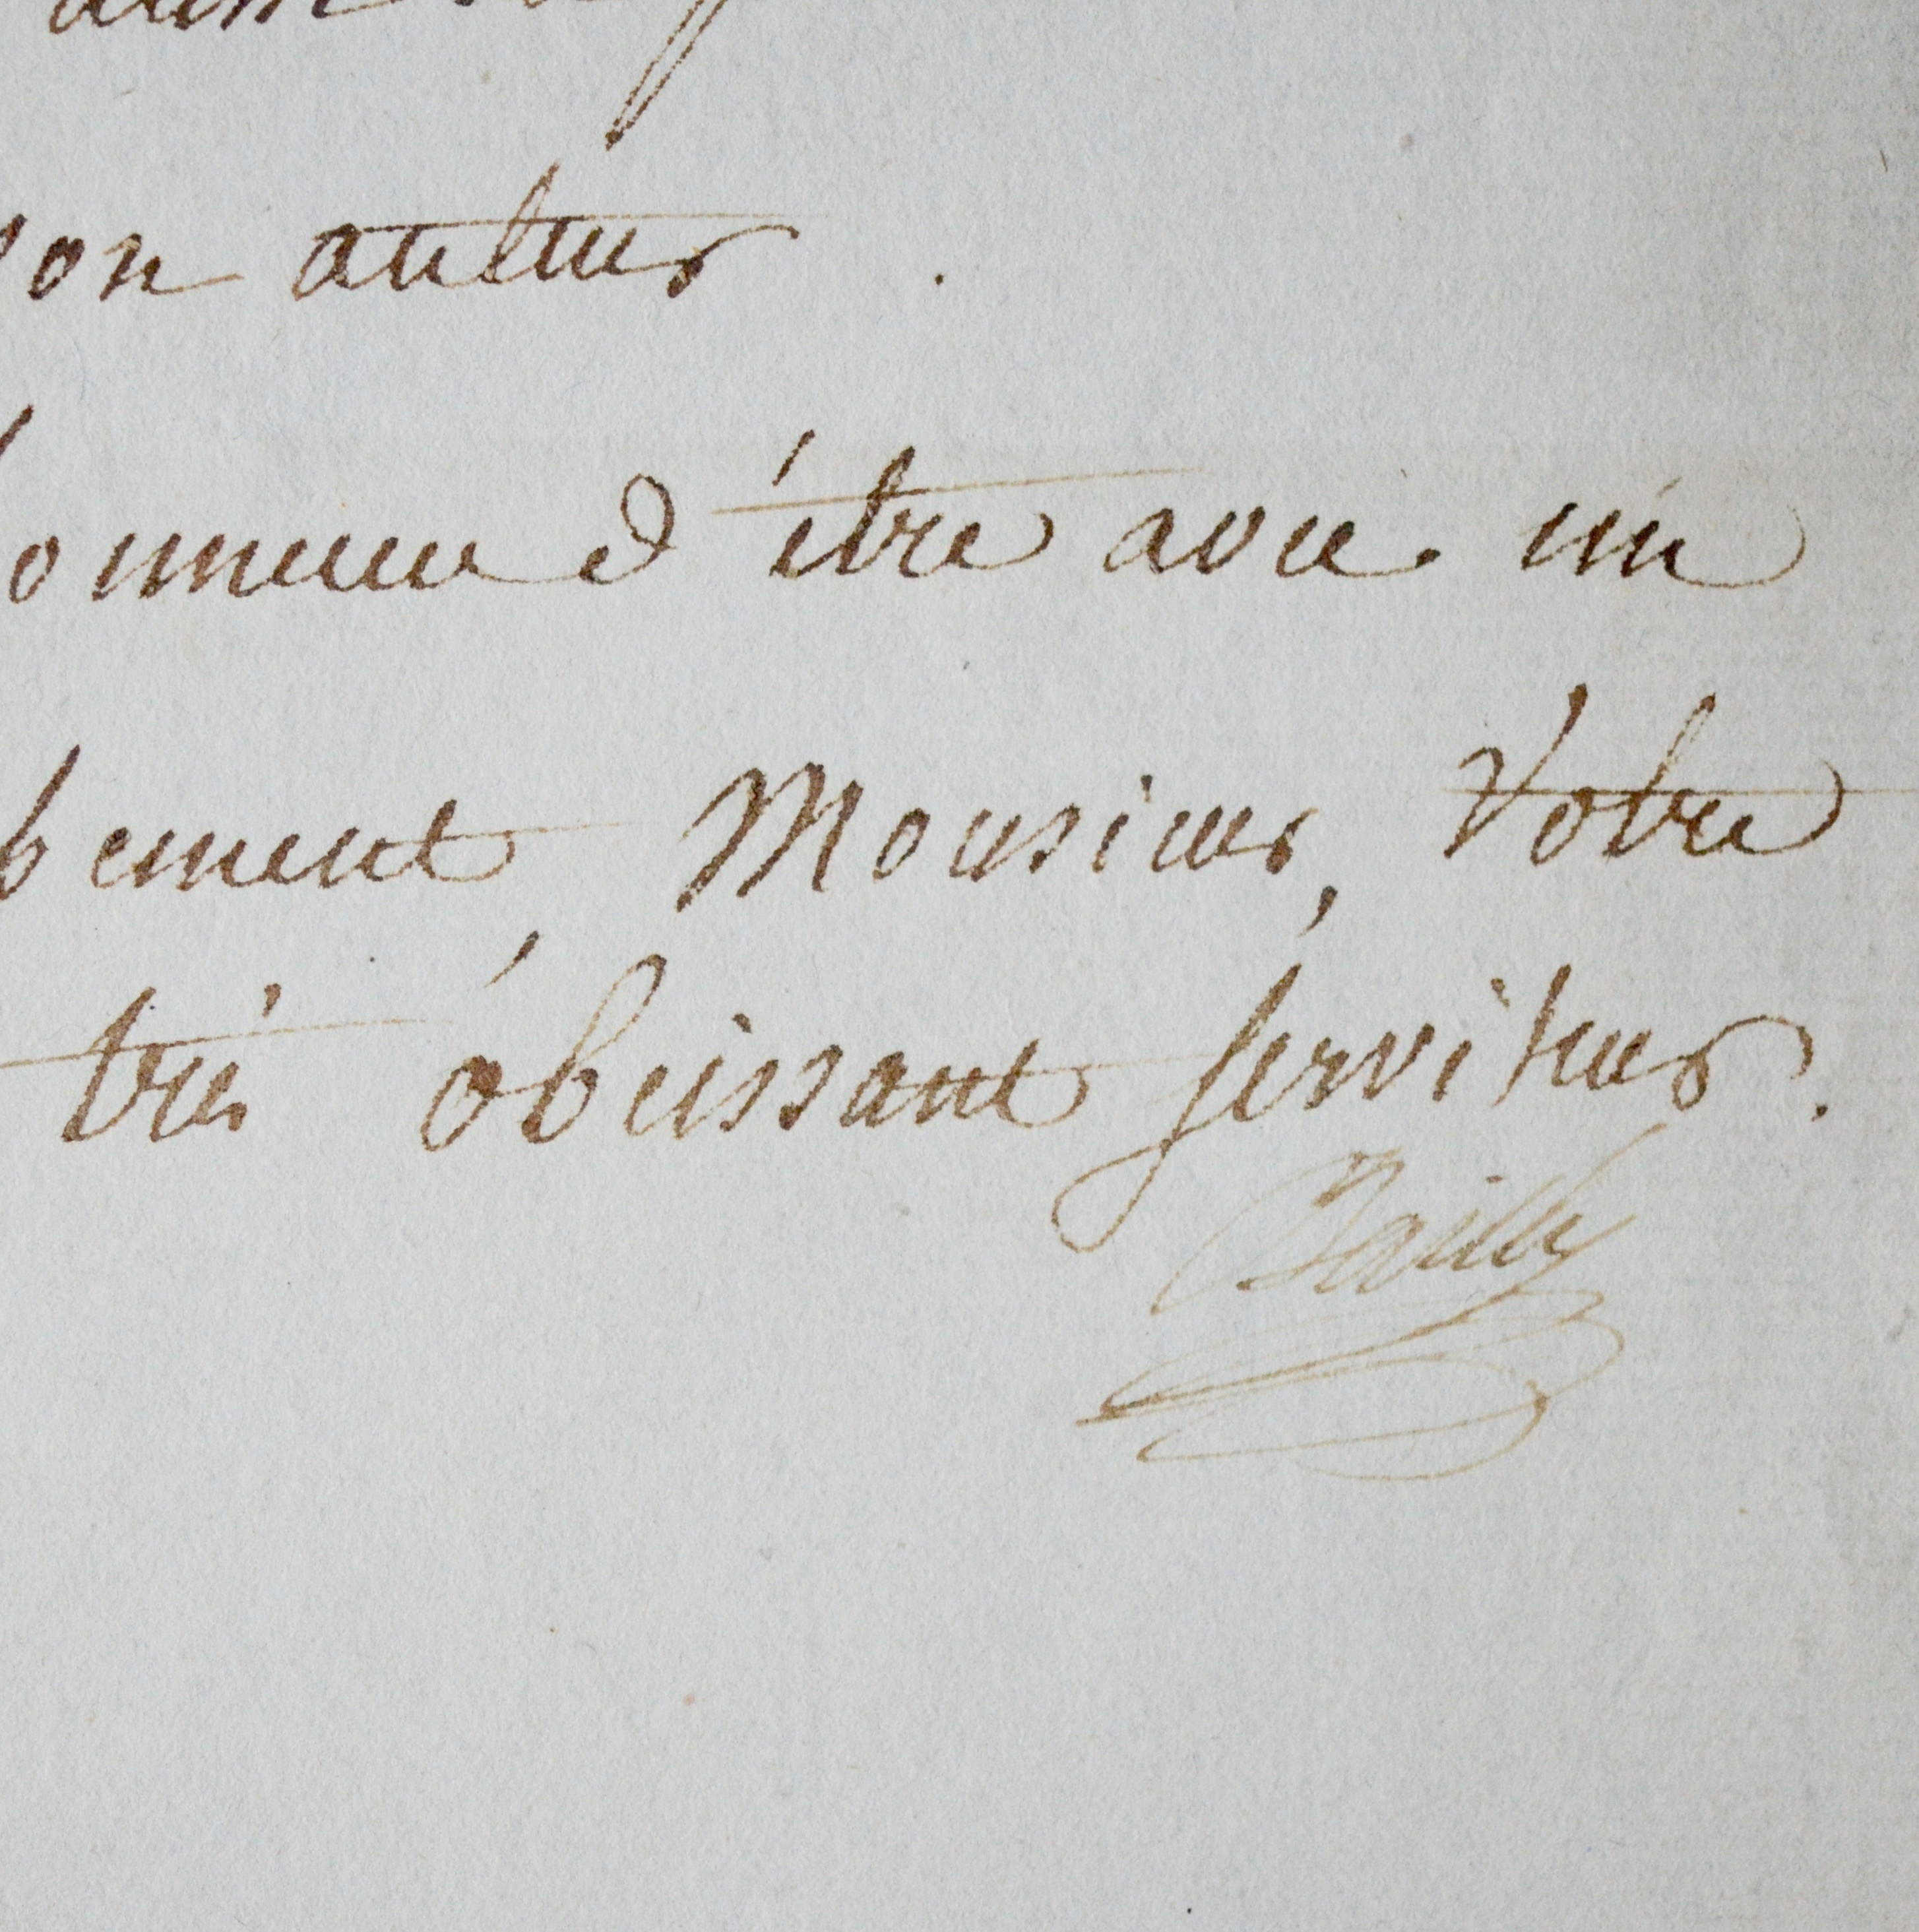 son auteur.
onneur d'être avec un
ement, Monsieur, Votre
très óbéissant serviteur.
Bailly